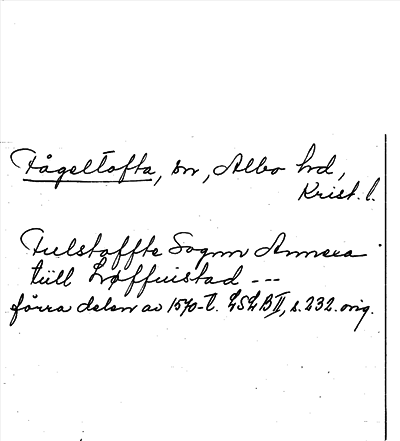 Fågeltofta, sn, Albo hd,
Krist. l.
Fulstoffte Sognn Annexa
till Løffuistad ---
förra delen av 1570-t. LSLBII, s. 232. orig.